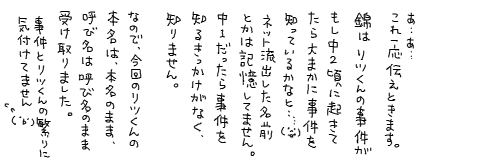 あ…あ…
これ一応伝えときます。
錦は リツくんの事件が
もし中2頃に起きて
たら大まかに事件を
知っているかなと…(;´ω`)
ネット流出した名前
とかは記憶してません。
中1だったら事件を
知るきっかけがなく、
知りません。
なので、今回のリツくんの
本名は、本名のまま、
呼び名は呼び名のまま
受け取りました。
事件とリツくんの繋りに
気付けてません